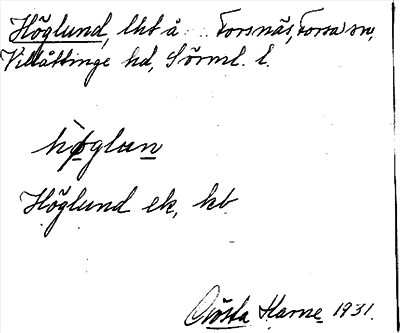 Höglund, lht å Torsnäs, Torsa sn,
Villåttinge hd, Sörml. l.
høglun
Höglund ek, kb
Gösta Harne 1931.